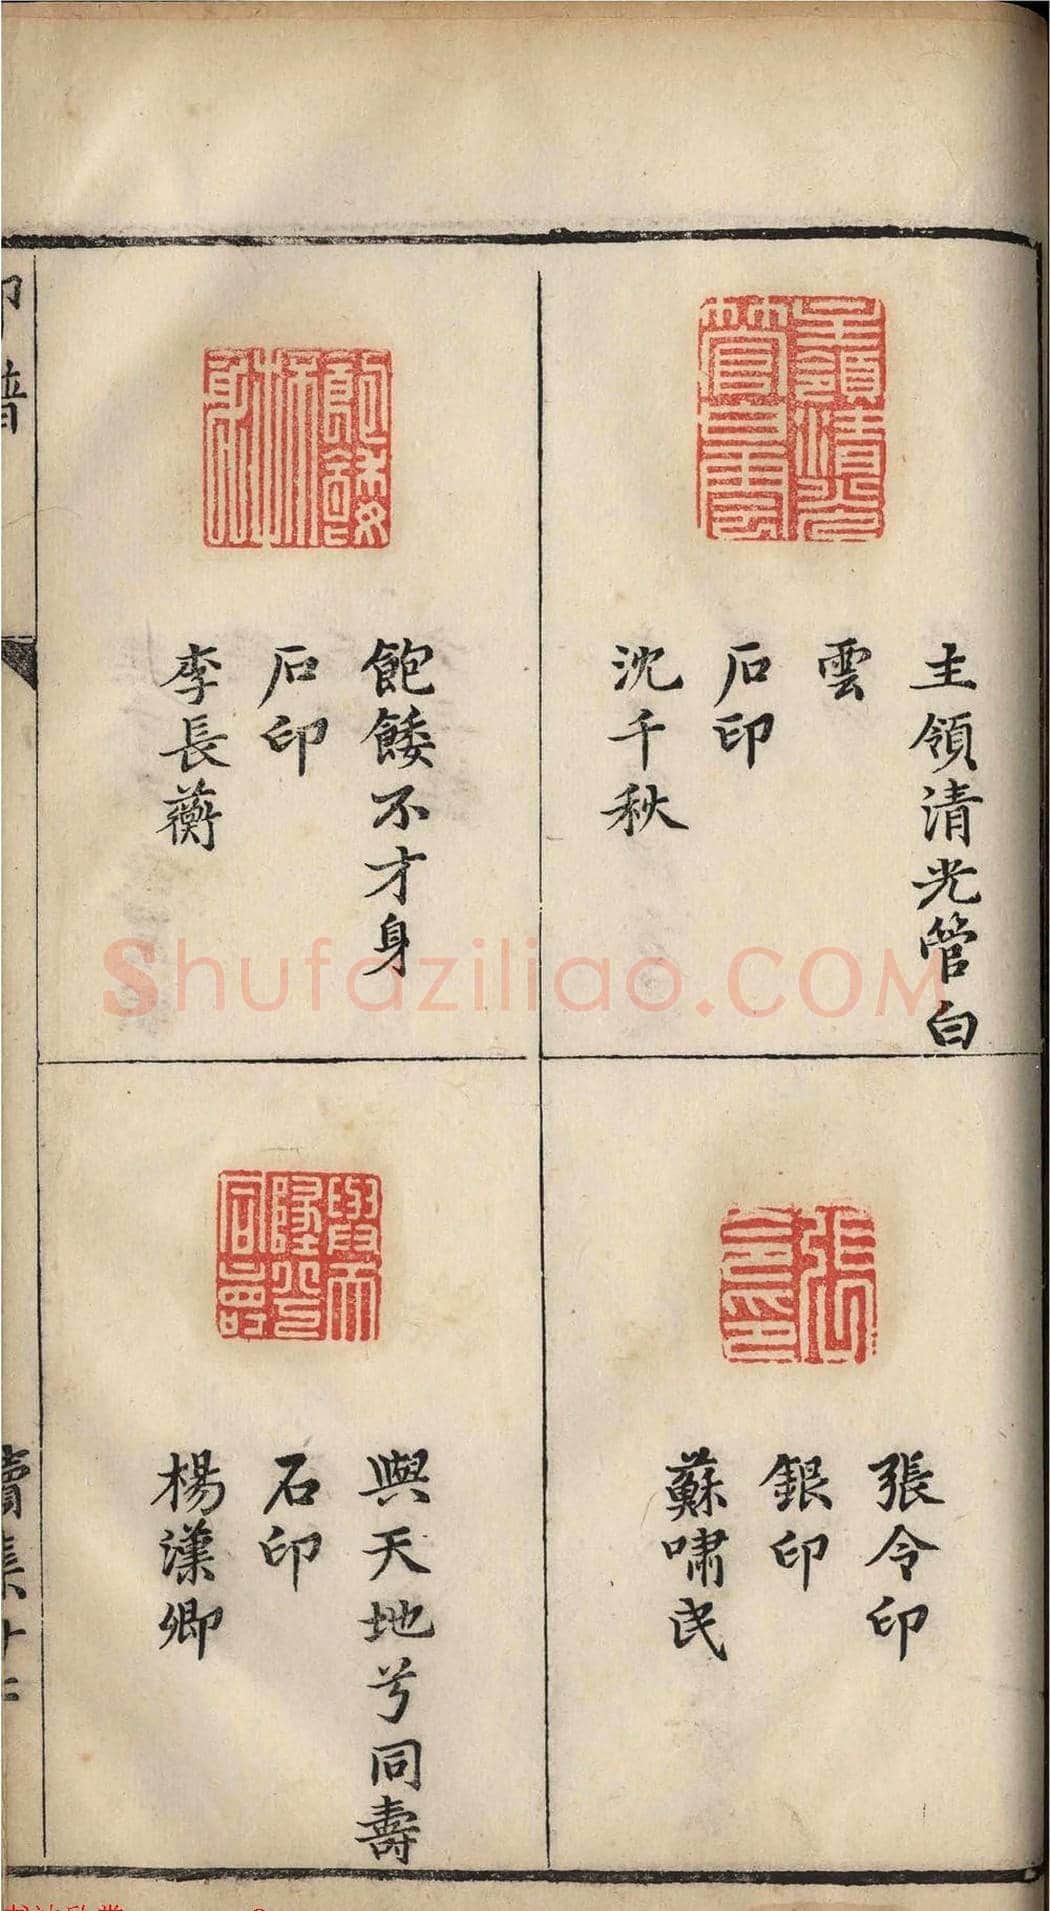 主領清光管白
雲
石印
沈千秋
張令印
銀印
蘇嘯民
飽餧不才身
石印
李長蘅
與天地兮同壽
石印
楊漢卿
印譜
續集十二
Shufaziliao.COM